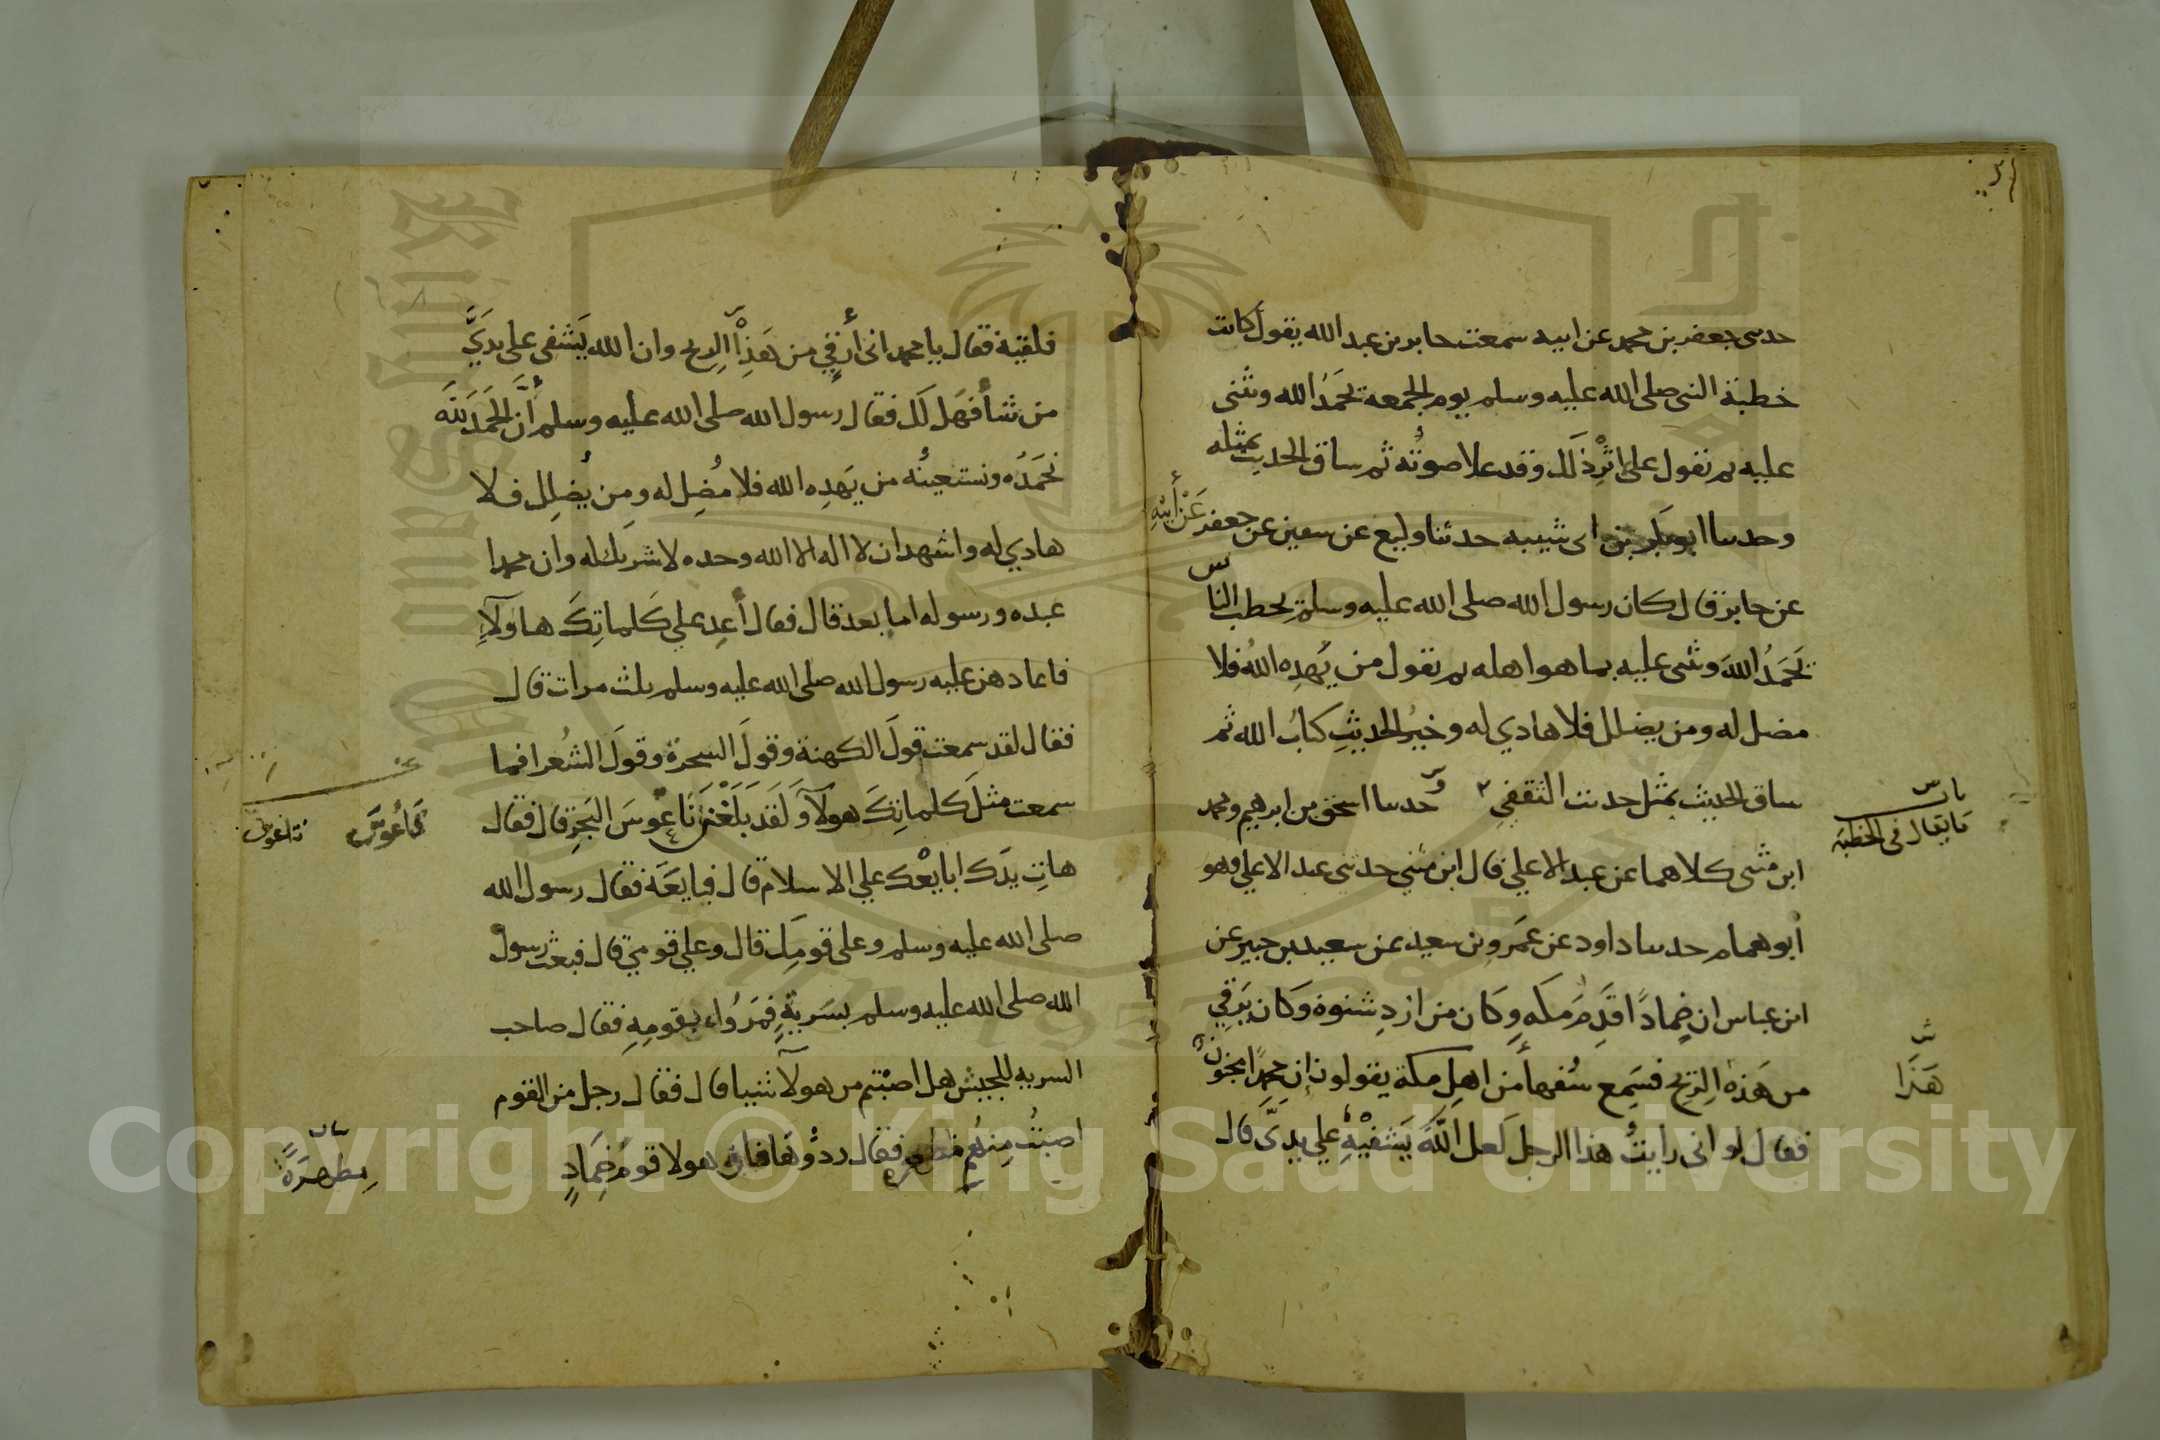 حدثنى جعفر بن محمد عن ابيه سمعت جابر بن عبد الله يقول كانت
خطبة النبى صلى الله عليه وسلم يوم الجمعة يَحمَدُ الله ويثنى
عليه ثم يقول على اثْرِ ذلك وقد علا صوتُه ثم ساق الحديث بمثله
وحدثنا ابو بكر بن ابى شيبه حدثنا وكيع عن سفين عن جعفر عَنْ أَبِيْهِ
عن جابر قال كان رسول الله صلى الله عليه وسلم يخطب الناس
يَحمَدُ اللهَ ويثنى عليه بما هو اهله ثم يقول من يَهدِه اللهُ فلا
مضل له ومن يضلل فلا هادي له وخيرُ الحديثِ كتابُ الله ثم
ساق الحديث بمثل حديث الثقفي وحدثنا اسحق بن ابرهيم ومحمد
باب
ما يقال فى الخطبة
ابن مثنى كلاهما عن عبد الاعلي قال ابن مثني حدثني عبد الاعلي وهو
أبو همام حدثنا داود عن عَمرو بن سعيد عن سعيد بن جبير عن
ابن عباس ان ضِمادًا قَدِمَ مكه وكان من ازدِ شنوة وَكان يَرقِي
من هَذِهِ الرِيح فسَمِع سُفهاءً من اهلِ مكة يقولون ان محمدًا مجنون
هَذَا
فقال لو انى رأيتُ هذا الرجلَ لعل اللَّهَ يَشفِيْهِ علي يديَّ قال
فلقيَهُ فقال يا محمد انى أَرقِي من هَذِهِ الرِيح وان الله يَشفى على يديَّ
من شأ فهَل لَك فقال رسول الله صلى الله عليه وسلم أنَّ الحَمدَ للَّه
نحمَدُه ونستعينُه من يَهدِه الله فلا مُضِل له ومن يُضلِل فلا
هادي له واشهد ان لا اله الا الله وحده لا شريك له وان محمدا
عبده ورسوله اما بعد قال فقال أَعِد علي كَلماتِكَ هاولآءِ
فاعادهن عليه رسول الله صلى الله عليه وسلم ثلث مرات قال
فقال لقد سمعت قولَ الكهنة وقولَ السحرة وقولَ الشُعرا فما
سمعت مثلَ كلماتِكَ هولآ وَلَقَد بَلَغْنَ نَاعُوسَ البَحرِ قال فقال
قَاعُوسَ
تاعوس
هاتِ يدَك ابايعْك علي الاسلام قال فبايعَهَ فقال رسول الله
صلى الله عليه وسلم وعلى قومِك قال وعلي قومي قال فبعث رسول
الله صلى الله عليه وسلم بسَريةٍ فمَرُوا بقومِهِ فقال صاحب
السريه للجيش هل اصبْتم من هولآ شيا قال فقال رجل من القوم
اصبتُ مِنهُم مطهره فقال ردوُهَا فان هولا قومُ ضِمَادٍ
مِطهَرَةً
Copyright © King Saud University